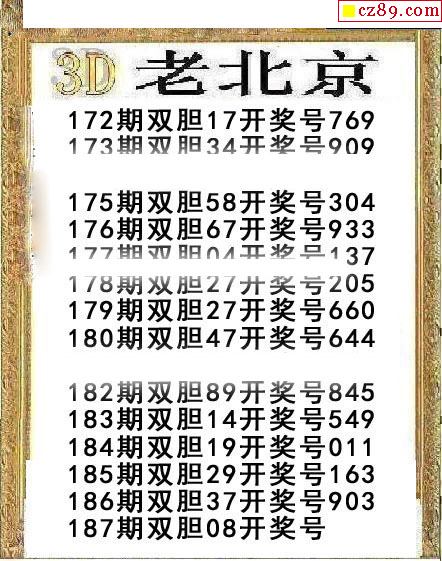 cz89.com
3D 老北京
172期双胆17开奖号769
173期双胆34开奖号909
175期双胆58开奖号304
176期双胆67开奖号933
177期双胆04开奖号137
178期双胆27开奖号205
179期双胆27开奖号660
180期双胆47开奖号644
182期双胆89开奖号845
183期双胆14开奖号549
184期双胆19开奖号011
185期双胆29开奖号163
186期双胆37开奖号903
187期双胆08开奖号